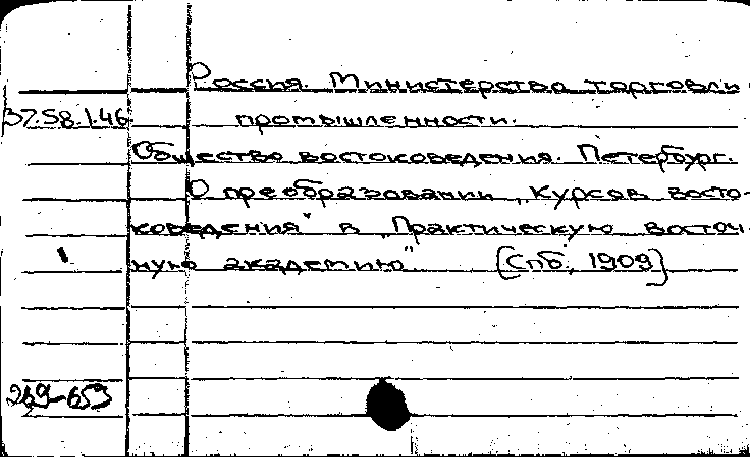 Россия. Министерство торговли
37.58.1.46 промышленности.
Общество востоковедения. Петербург.
О преобразовании „Курсов восто-
коведения" в „Практическую восточ-
ную академию". [Спб, 1909]
269-659